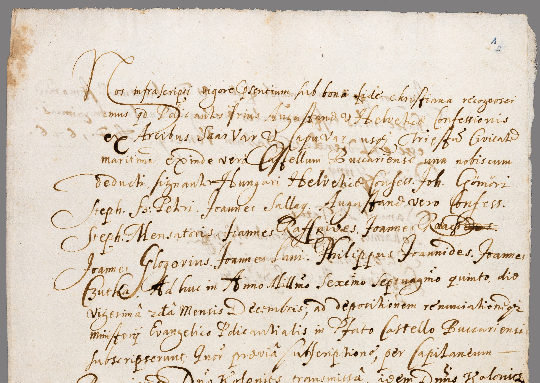 Nos infrascripti vigore Psentium sub bona fide christiana recognosci
mus qd Pdicantes Prius Augustanae & Helveticae Confessionis
ex Arcibus Saarvar & Capuvar ausp Triestū Civitatē
maritimā exinde vero Castellum Buccariense una nobiscum
deducti, signanter Hungari Helveticae Confess. Joh. Gömöri
Steph. Sz. Petri. Joannes Sallay. Augustanae vero Confess.
Steph. Mensatoris Joannes Raffinides. Joannes
Joannes Glogovius. Joannes Lani. Philippus Joannides. Joannes
Ad huc in Anno Millmo Sexcmo Septuagmo quinto, die
vigesimā 2dā Mensis Decembris, ad depositionem renunciationēqz
ministerij Evangelico Pdicantialis in Pfato Castello Buccariensi
subscripserunt. Quor praeviā subscriptionē, per Capitaneum
Dnū Kolonits transmissā idem Dnūs Kolonicz